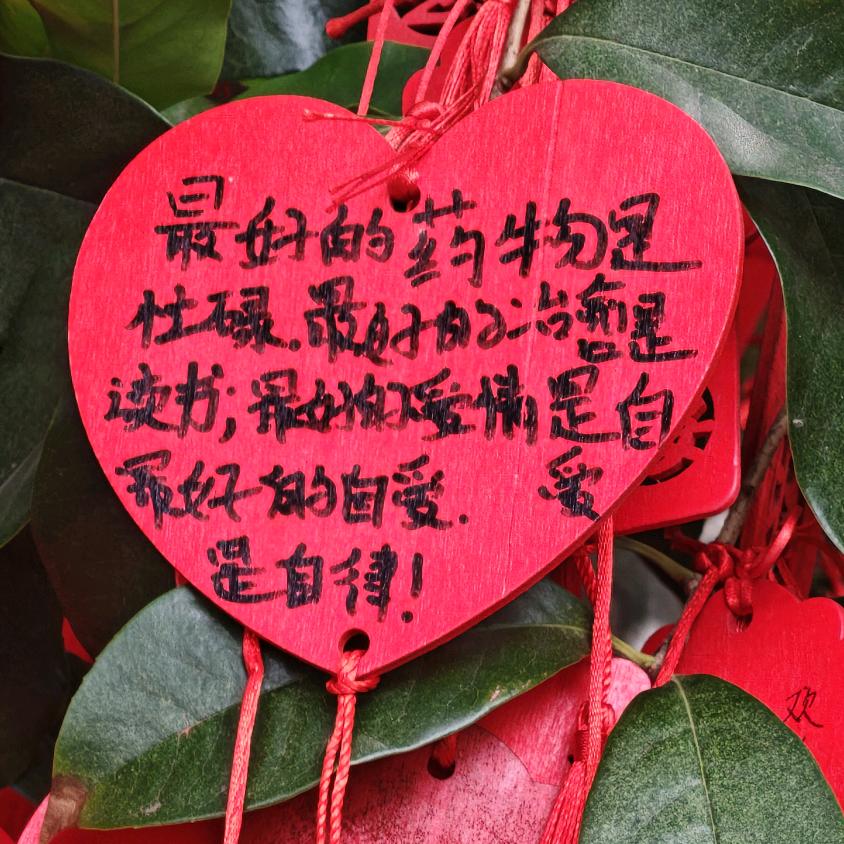 最好的药物是
忙碌.最好的治愈是
读书;最好的爱情是自
爱
最好的自爱.
是自律!
欢